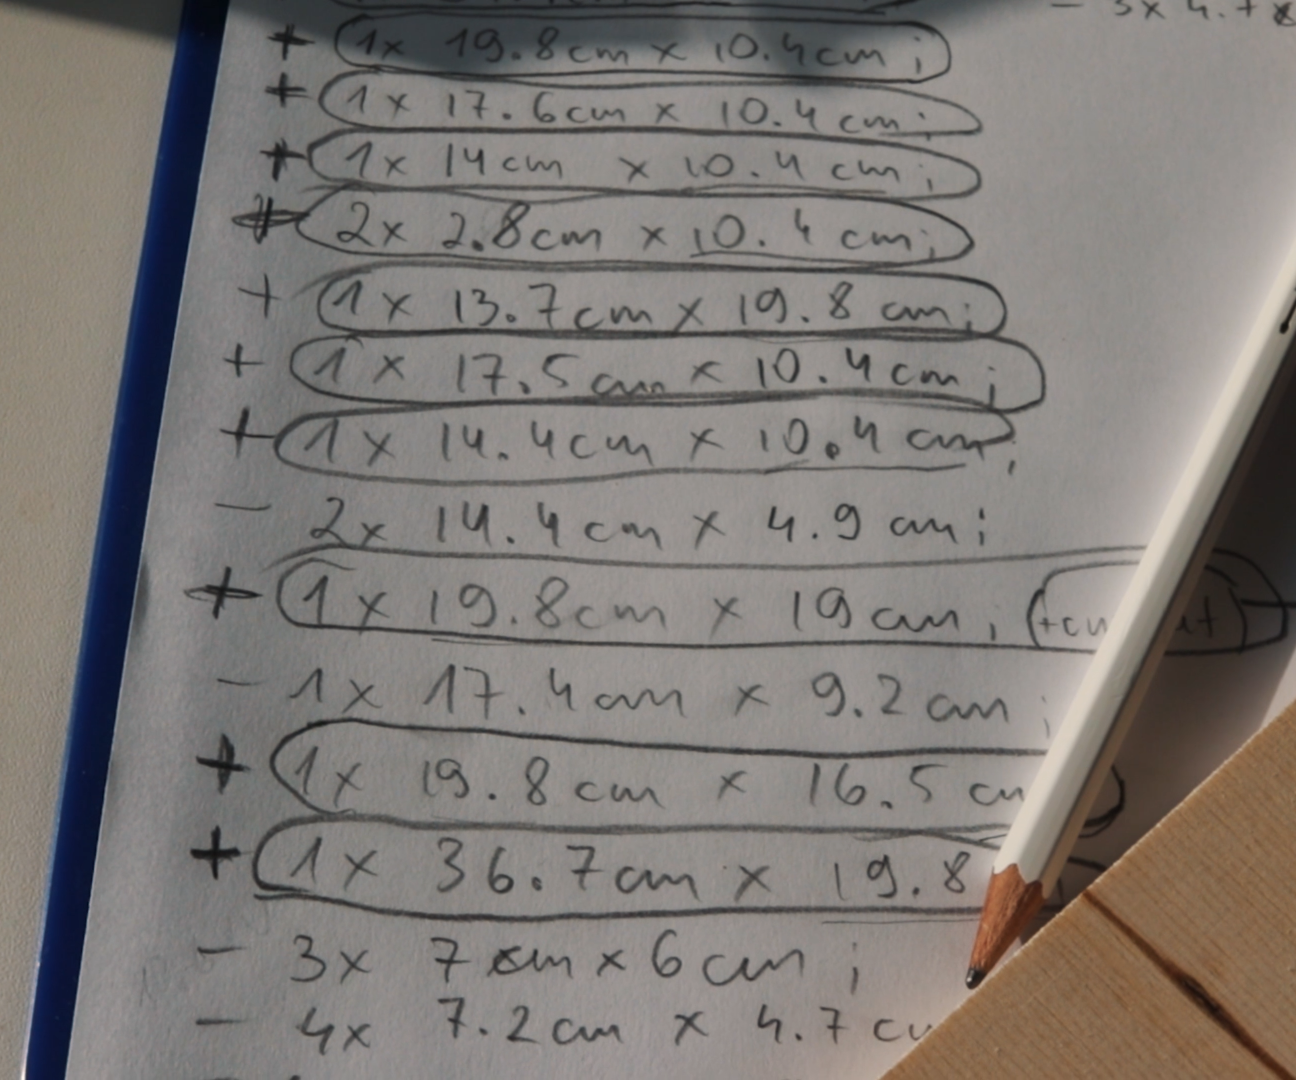 - 3x 4.7x
+ 1x 19.8cm x 10.4cm;
+ 1x 17.6cm x 10.4 cm;
+ 1x 14cm x 10.4 cm;
+ 2x 2.8cm x 10.4 cm;
+ 1x 13.7cm x 19.8 cm;
+ 1x 17.5cm x 10.4cm;
+ 1x 14.4cm x 10.4 cm;
- 2x 14.4cm x 4.9 cm;
+ 1x 19.8cm x 19cm;
- 1x 17.4cm x 9.2cm;
+ 1x 19.8cm x 16.5 cm
+ 1x 36.7cm x 19.8
- 3x 7cm x 6cm;
- 4x 7.2cm x 4.7 cm